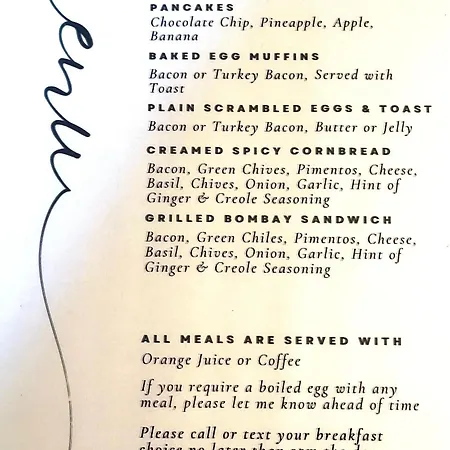 enu
PANCAKES
Chocolate Chip, Pineapple, Apple,
Banana
BAKED EGG MUFFINS
Bacon or Turkey Bacon, Served with
Toast
PLAIN SCRAMBLED EGGS & TOAST
Bacon or Turkey Bacon, Butter or Jelly
CREAMED SPICY CORNBREAD
Bacon, Green Chives, Pimentos, Cheese,
Basil, Chives, Onion, Garlic, Hint of
Ginger & Creole Seasoning
GRILLED BOMBAY SANDWICH
Bacon, Green Chiles, Pimentos, Cheese,
Basil, Chives, Onion, Garlic, Hint of
Ginger & Creole Seasoning
ALL MEALS ARE SERVED WITH
Orange Juice or Coffee
If you require a boiled egg with any
meal, please let me know ahead of time
Please call or text your breakfast
choice no later than